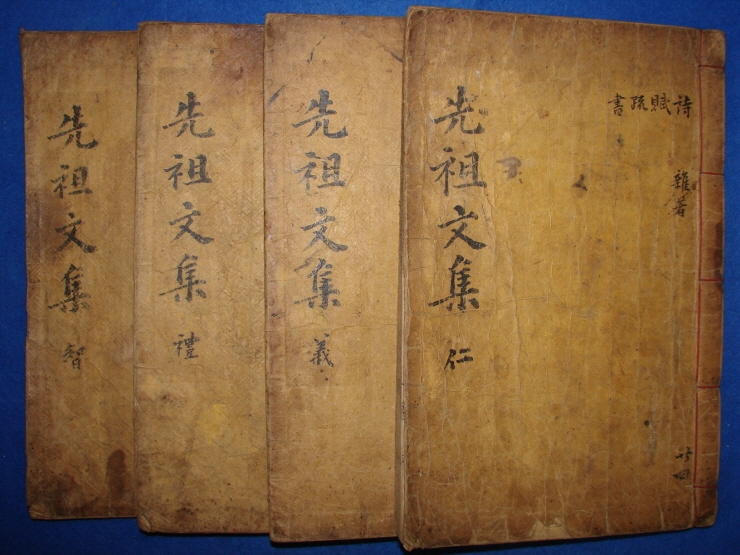 詩賦疏書
雜著
共四
先祖文集 仁
先祖文集 義
先祖文集 禮
先祖文集 智